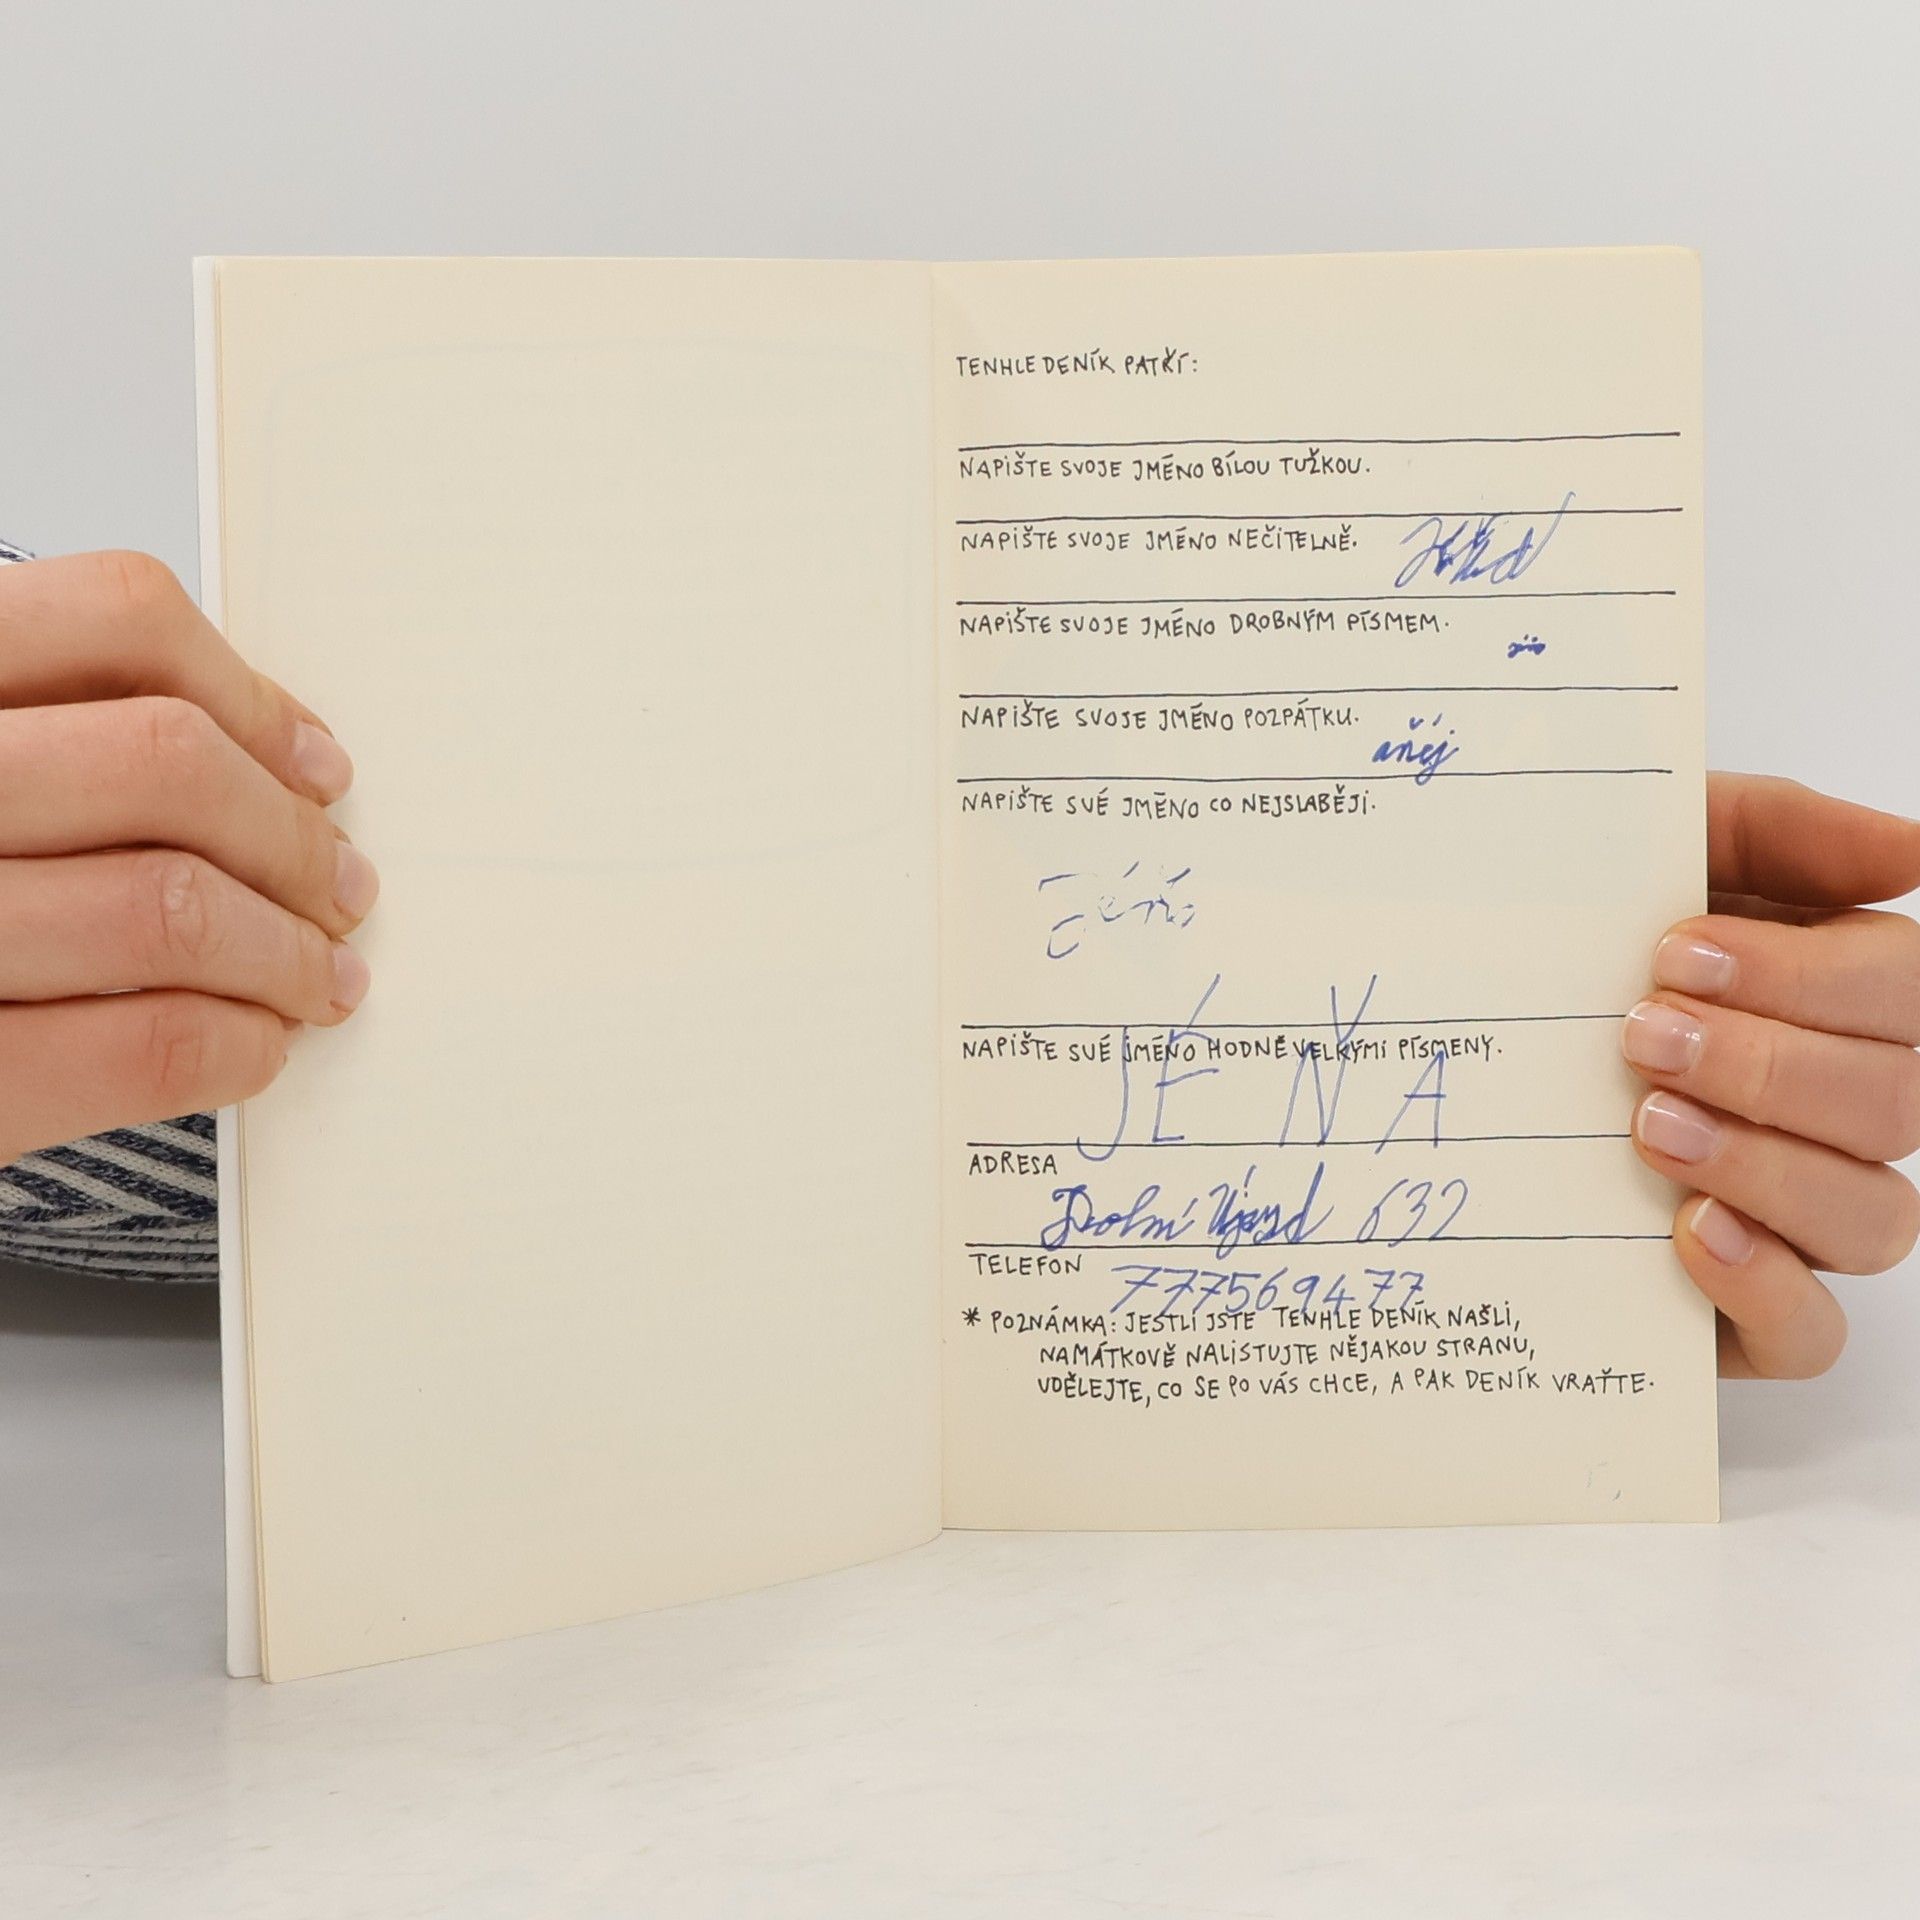 TENHLE DENÍK PATŘÍ:
NAPIŠTE SVOJE JMÉNO BÍLOU TUŽKOU.
NAPIŠTE SVOJE JMÉNO NEČITELNĚ.
NAPIŠTE SVOJE JMÉNO DROBNÝM PÍSMEM.
NAPIŠTE SVOJE JMÉNO POZPÁTKU.
aňéj
NAPIŠTE SVÉ JMÉNO CO NEJSLABĚJI.
Jéňa
NAPIŠTE SVÉ JMÉNO HODNĚ VELKÝMI PÍSMENY.
JÉŇA
ADRESA
Dolní Újezd 632
TELEFON 777569477
* POZNÁMKA: JESTLI JSTE TENHLE DENÍK NAŠLI,
NAMÁTKOVĚ NALISTUJTE NĚJAKOU STRANU,
UDĚLEJTE, CO SE PO VÁS CHCE, A PAK DENÍK VRAŤTE.